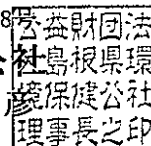 8
公益財団法
社島根県環
彦
境保健公社
理事長之印